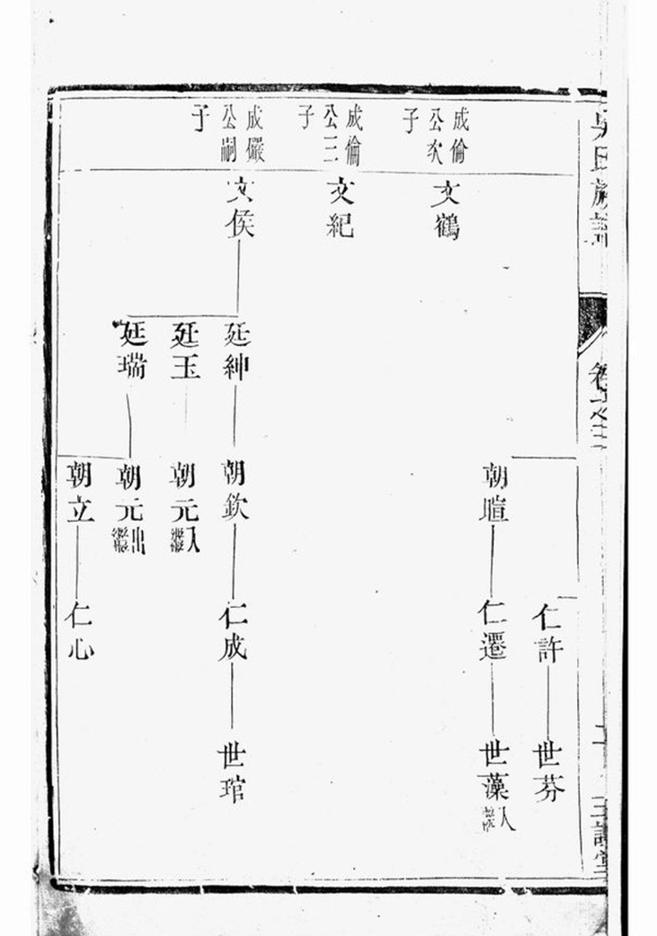 氏族譜
成倫公次子
文鶴
成倫公三子
文紀
成儼公嗣子
文侯
廷紳
廷玉
廷瑞
仁許
世芬
朝暄
仁遷
世藻入繼
朝欽
仁成
世琯
朝元入繼
朝元出繼
朝立
仁心